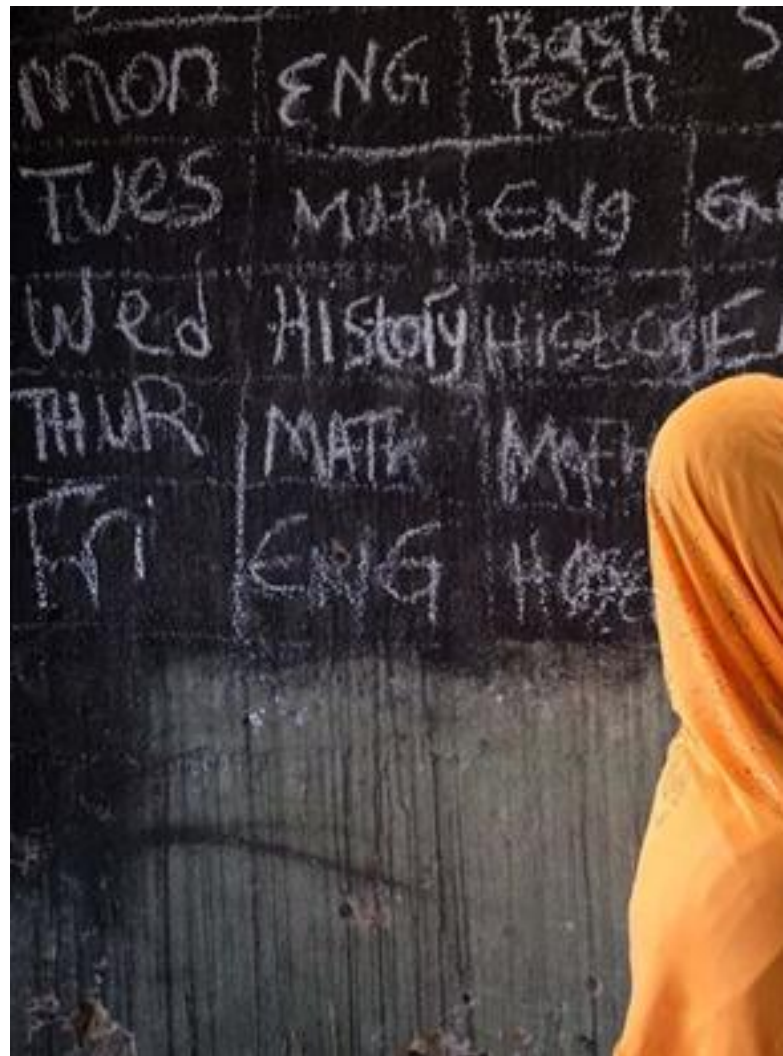 Mon ENG Basic Tech S
TUes Math ENg EN
Wed HIStory History E
THUR MATH MATH
Fri ENG